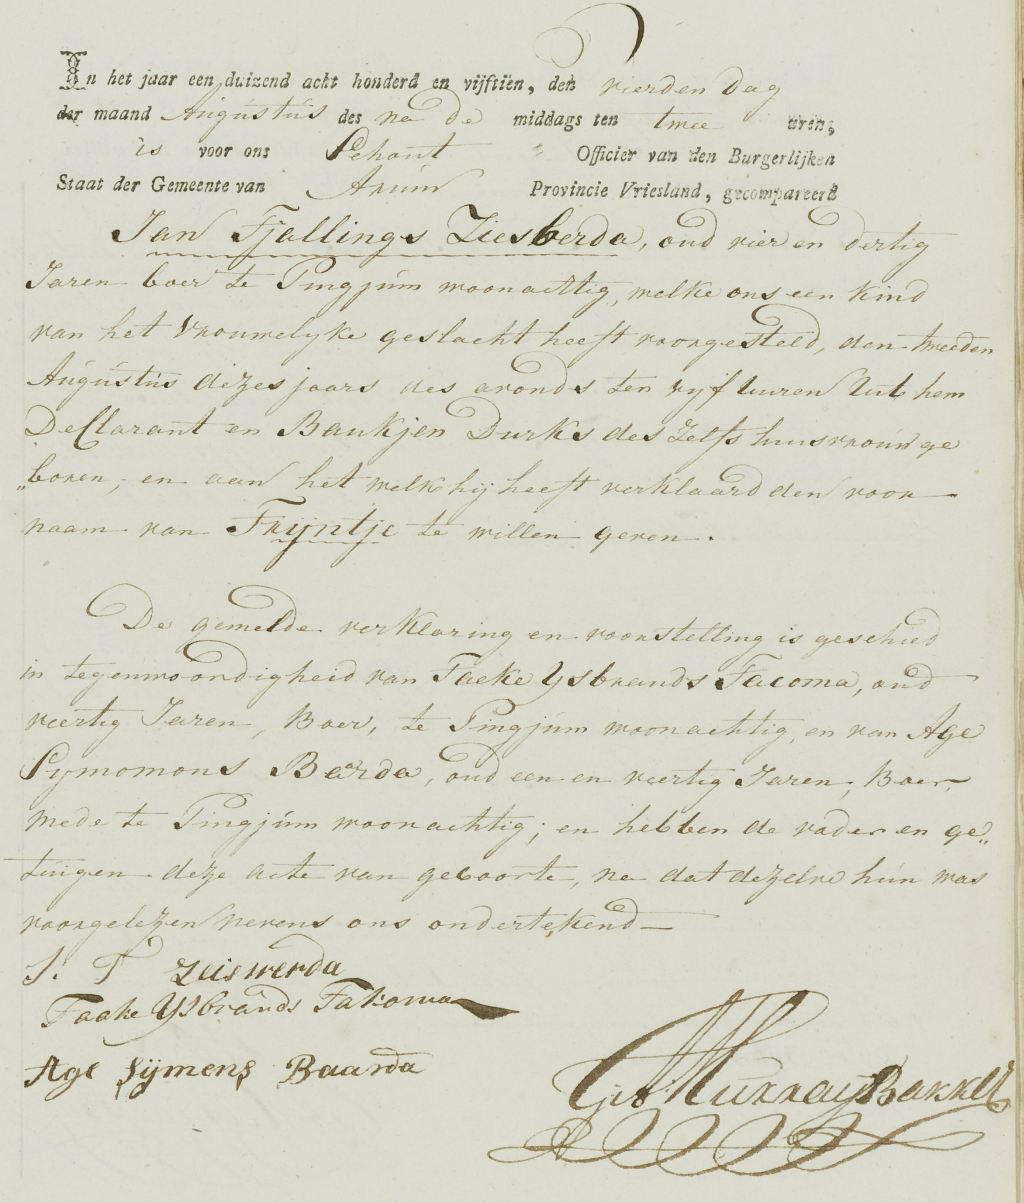 In het jaar een duizend acht honderd en vijftien, den vierden dag
der maand Augustus des na de middags ten twee uren,
is voor ons Schout Officier van den Burgerlijken
Staat der Gemeente van Arum Provincie Vriesland, gecompareerd
Jan Tjallings Ziesberda, oud vier en dertig
Jaren boer te Pingjum woonachtig, welke ons een kind
van het Vrouwelyke geslacht heeft voorgesteld, den tweeden
Augustus dezes jaars des avonds ten vyf uuren uit hem
Declarant en Baukjen Durks des Zelfs huisvrouw ge
„boren, en aan het welk hij heeft verklaard den voor
naam van Trijntje te willen geven.
De gemelde verklaring en voorstelling is geschied
in tegenwoordigheid van Taeke Ysbrands Tacoma, oud
veertig Jaren, Boer, te Pingjum woonachtig, en van Age
Symomons Barda, oud een en veertig Jaren, Boer,
mede te Pingjum woonachtig; en hebben de vader en ge„
tuigen deze acte van geboorte, na dat dezelve hun was
voorgelezen nevens ons ondertekend
J. T Zeiswerda
Taake Ysbrands Takoma
Age Sijmens Baarda
Murray Bakker